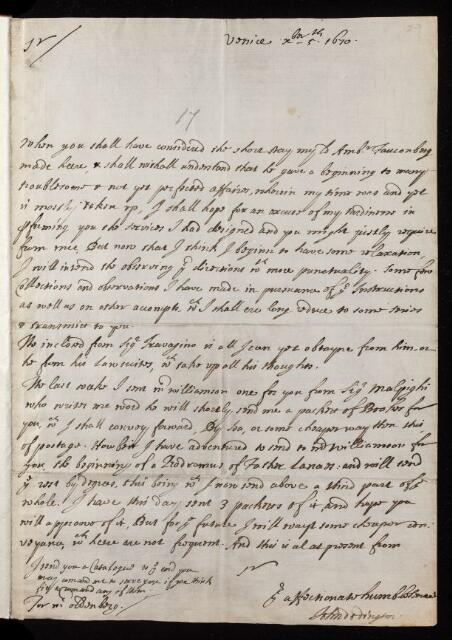 Sr
Venice xber 5th 1670.
17
When you shall have considered the short stay my Ld Ambr Fauconberg
made here, & shall withall understand that he gave a beginning to many
troublesome & not yet perfected affaires, wherein my time was and yet
is mostly taken up, I shall hope for an excuse of my tardiness in
pforming you the services I had designed and you might justly require
from mee. But now that I think I begin to have some relaxation,
I will intend the observing yr directions wth more punctuality. Some few
Collections and observations I have made in pursuance of yr Instructions
as well as on other accompts, wch I shall ere long reduce to some series
& transmitt to you.
The inclosed from Sigr Travagino is all I can yet obtayne from him, or
he from his Lawsuites, wch take up all his thoughts.
The last weeke I sent mr williamson one for you from Sigr Malpighi
who writes me word he will shortly send me a packett of Bookes for
you, wch I shall convey forward, By Sea, or some cheaper way then this
of postage. However I have adventured to send to mr Williamson for
you the beginning of a Prodromus of Father Lanas: and will send
ye rest by degrees, this being wch I now send above a third part of ye
whole. I have this day sent 3 packetts of it and hope you
will approove of it, But for ye future I will wayt some cheaper con-
veyance, wch here are not frequent. And this is al at present from
I send you a Catalogue
may command me to serve you if you think
fitt to command any of them.
Sr
yr affectionate humble servant
For mr oldenburg.
John Dodington.